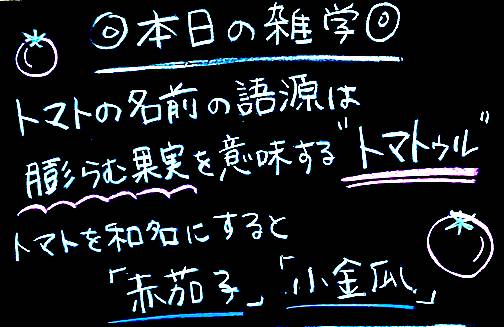 ◎本日の雑学◎
トマトの名前の語源は
膨らむ果実を意味する"トマトゥル"
トマトを和名にすると
「赤茄子」「小金瓜」